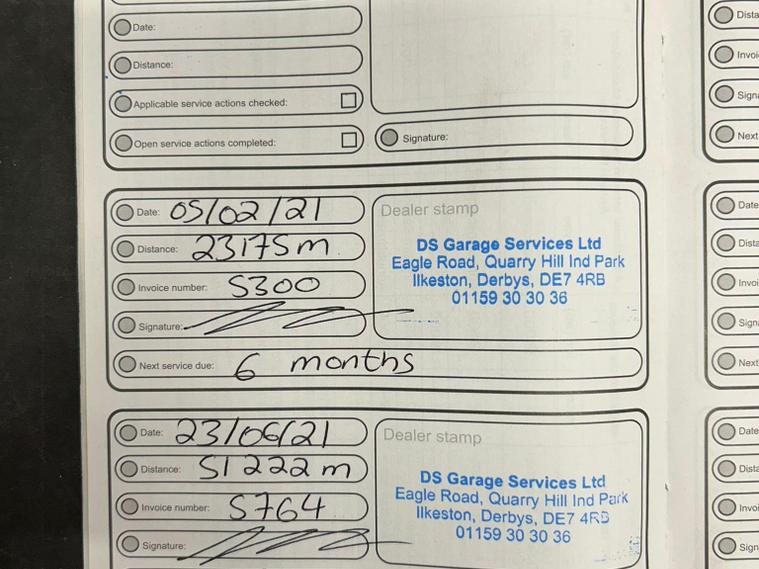 Date:
Distance:
Applicable service actions checked:
Open service actions completed:
Signature:
Date: 05/02/21
Distance: 23175m
Invoice number: S300
Signature:
Next service due: 6 months
Dealer stamp
DS Garage Services Ltd
Eagle Road, Quarry Hill Ind Park
Ilkeston, Derbys, DE7 4RB
01159 30 30 36
Date: 23/06/21
Distance: 51222m
Invoice number: S764
Signature:
Dealer stamp
DS Garage Services Ltd
Eagle Road, Quarry Hill Ind Park
Ilkeston, Derbys, DE7 4RB
01159 30 30 36
Next
Date
Dista
Invoi
Signa
Next
Date
Dista
Invoi
Sign